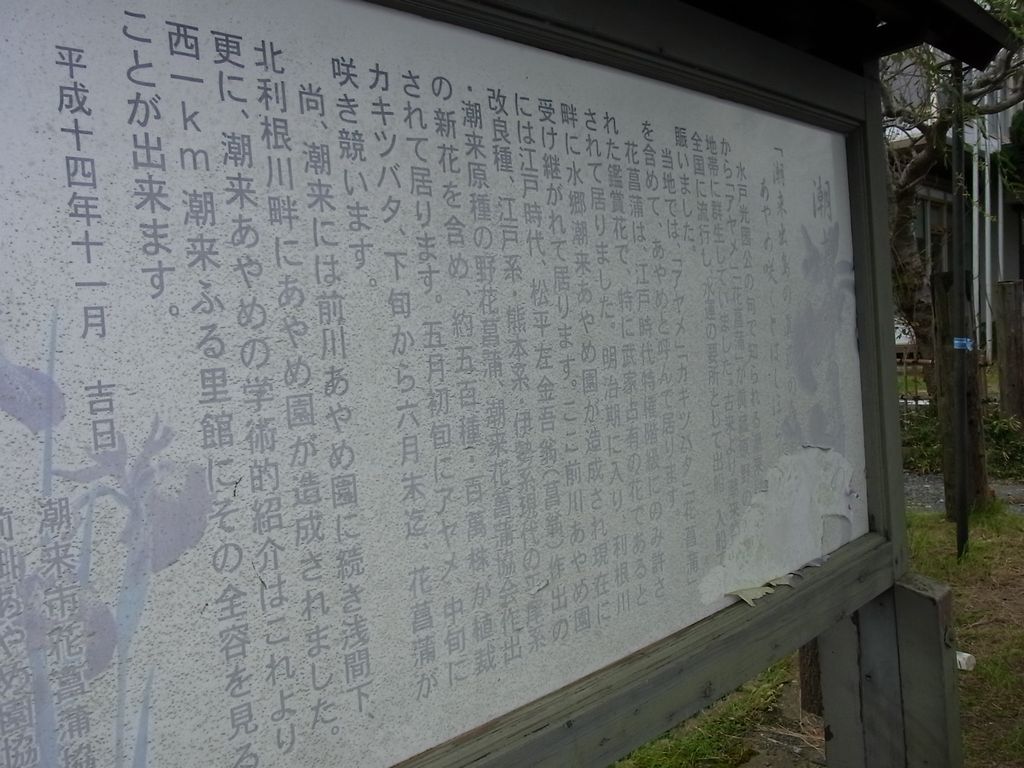 潮
「潮来出島の
水戸光圀公の句で知られる潮来
から「アヤメ」「花菖蒲」が
地帯に群生していました。古来より潮来は
全国に流行し、水運の要所として出船、入船で
賑いました。
当地では「アヤメ」「カキツバタ」「花菖蒲」
を含めて、あやめと呼んで居ります。
花菖蒲は、江戸時代特権階級にのみ許さ
れた鑑賞花で、特に武家占有の花であると
されて居りました。明治期に入り、利根川
畔に水郷潮来あやめ園が造成され現在に
受け継がれて居ります。ここ前川あやめ園
には江戸時代、松平左金吾翁(菖翁)作出の
改良種、江戸系・熊本系・伊勢系現代の平系
・潮来原種の野花菖蒲、潮来花菖蒲協会作出
の新花を含め、約五百種・百萬株が植栽
されて居ります。五月初旬にアヤメ、中旬に
カキツバタ、下旬から六月末迄、花菖蒲が
咲き競います。
尚、潮来には前川あやめ園に続き浅間下
北利根川畔にあやめ園が造成されました。
更に、潮来あやめの学術的紹介はこれより
西一km潮来ふる里館にその全容を見る
ことが出来ます。
平成十四年十一月 吉日
潮来市花菖蒲協
前川あやめ園協